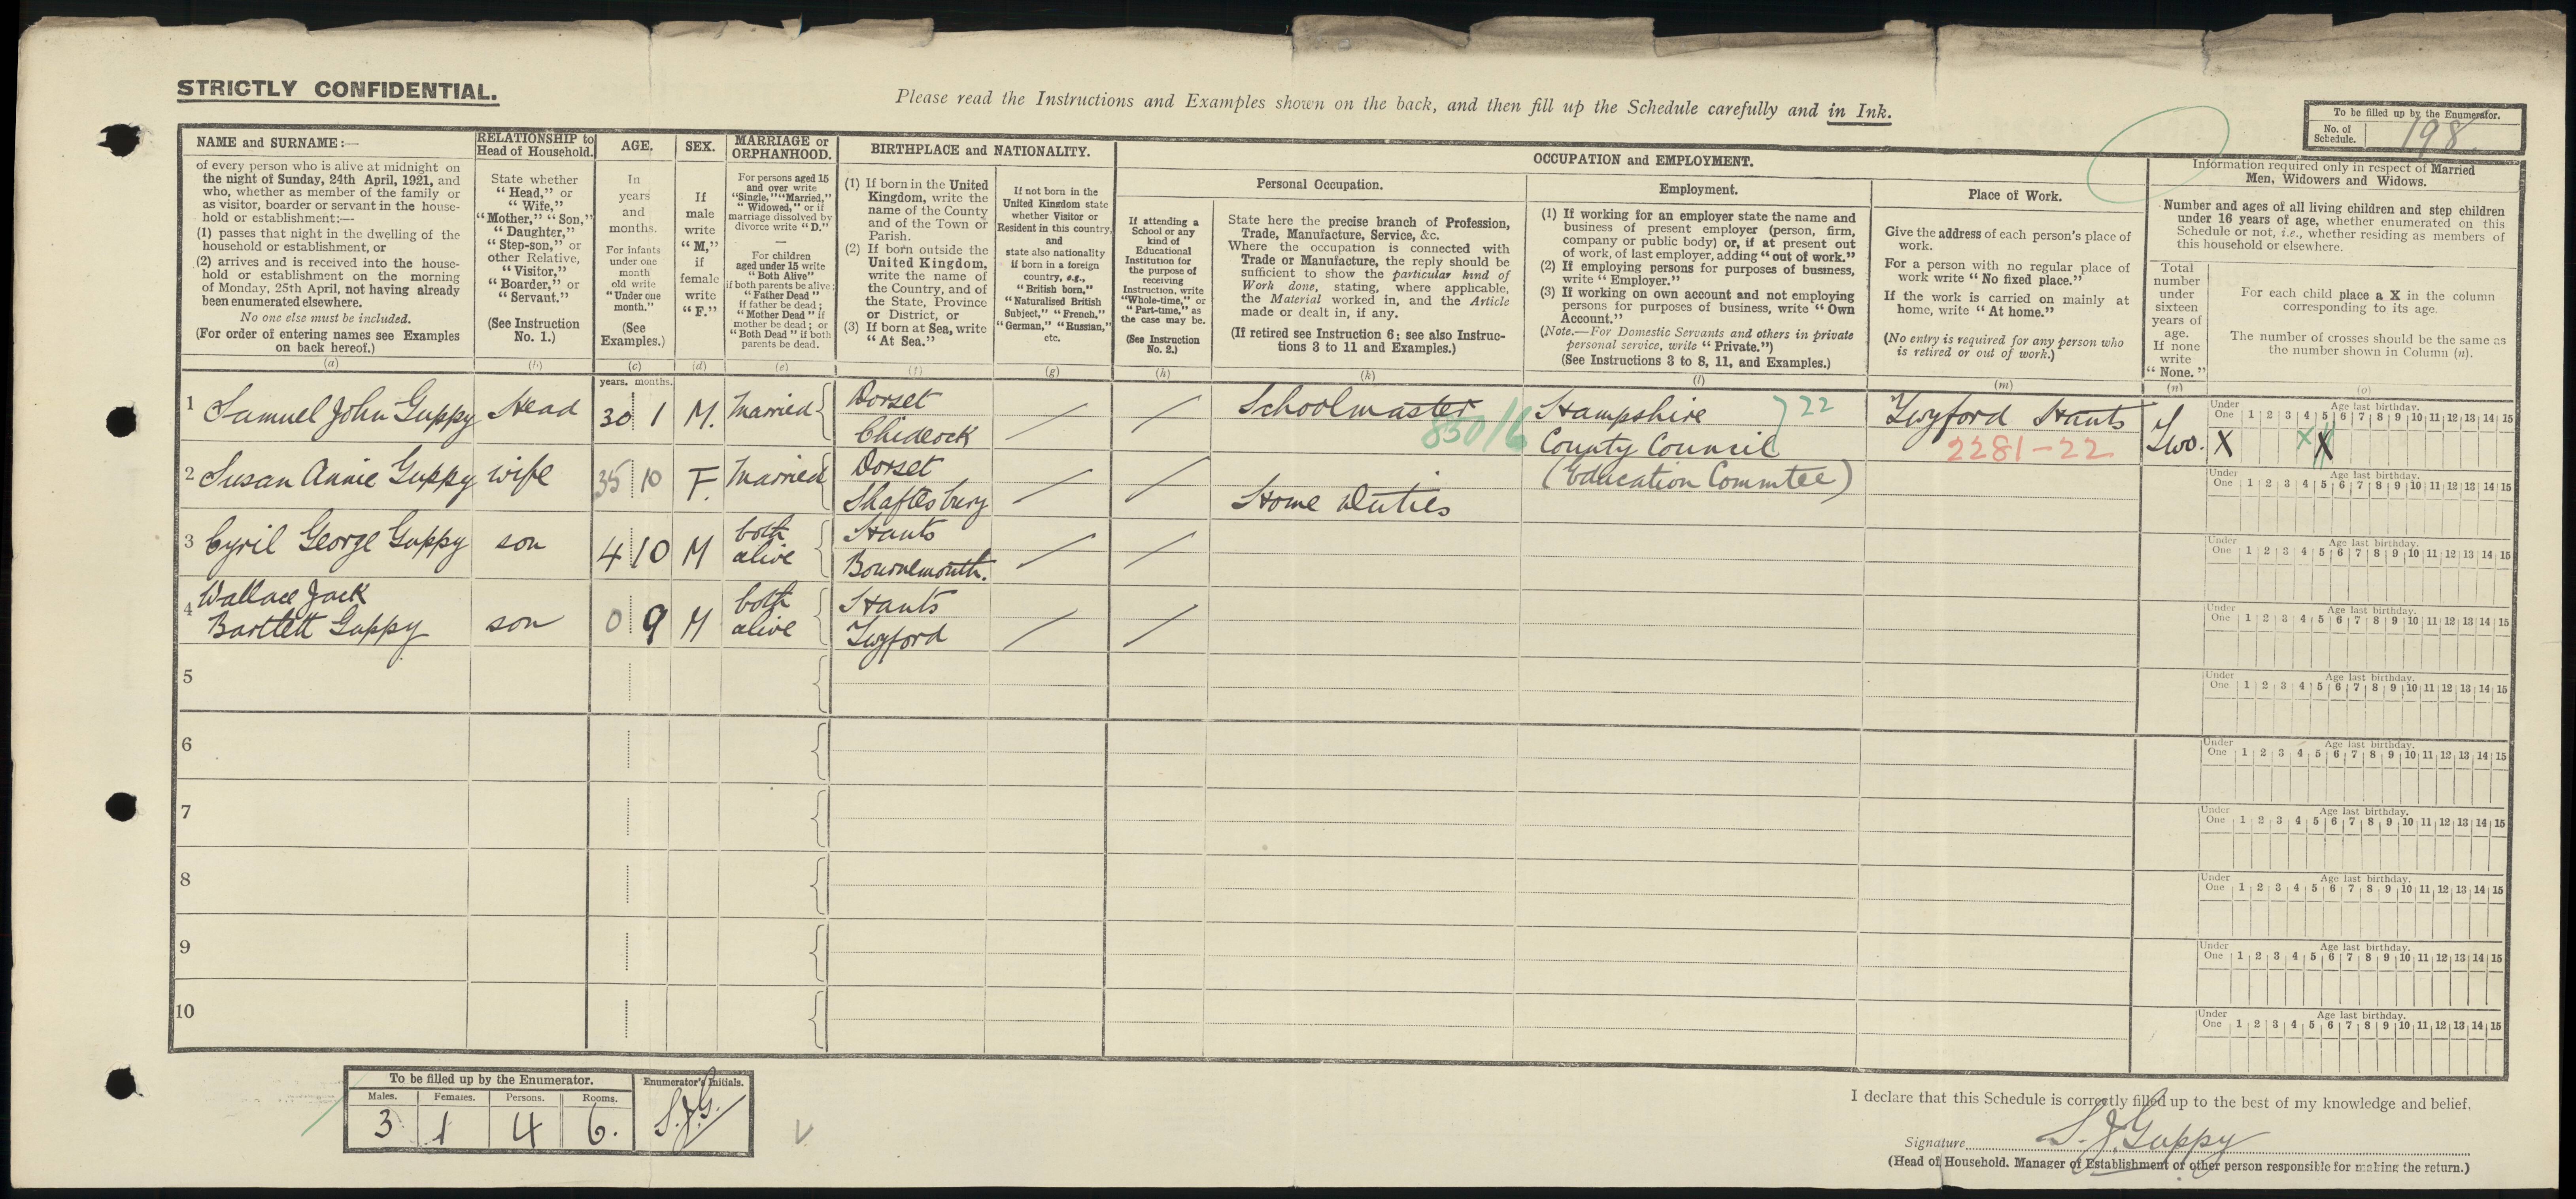 STRICTLY CONFIDENTIAL.
Please read the Instructions and Examples shown on the back, and then fill up the Schedule carefully and in Ink.
To be filled up by the Enumerator.
No. of Schedule. 198.
NAME and SURNAME:—
of every person who is alive at midnight on
the night of Sunday, 24th April, 1921, and
who, whether as member of the family or
as visitor, boarder or servant in the house-
hold or establishment:—
(1) passes that night in the dwelling of the
household or establishment, or
(2) arrives and is received into the house-
hold or establishment on the morning
of Monday, 25th April, not having already
been enumerated elsewhere.
No one else must be included.
(For order of entering names see Examples
on back hereof.)
(a)
RELATIONSHIP to
Head of Household.
State whether
"Head," or
"Wife,"
"Mother," "Son,"
"Daughter,"
"Step-son," or
other Relative,
"Visitor,"
"Boarder," or
"Servant."
(See Instruction
No. 1.)
(b)
AGE.
In
years
and
months.
For infants
under one
month
old write
"Under one
month."
(See
Examples.)
(c)
SEX.
If
male
write
"M,"
if
female
write
"F."
(d)
MARRIAGE or
ORPHANHOOD.
For persons aged 15
and over write
"Single," "Married,"
"Widowed," or if
marriage dissolved by
divorce write "D."
—
For children
aged under 15 write
"Both Alive"
if both parents be alive;
"Father Dead"
if father be dead;
"Mother Dead" if
mother be dead; or
"Both Dead" if both
parents be dead.
(e)
BIRTHPLACE and NATIONALITY.
(1) If born in the United
Kingdom, write the
name of the County
and of the Town or
Parish.
(2) If born outside the
United Kingdom,
write the name of
the Country, and of
the State, Province
or District, or
(3) If born at Sea, write
"At Sea."
(f)
If not born in the
United Kingdom state
whether Visitor or
Resident in this country,
and
state also nationality
if born in a foreign
country, e.g.,
"British born,"
"Naturalised British
Subject," "French,"
"German," "Russian,"
etc.
(g)
OCCUPATION and EMPLOYMENT.
Personal Occupation.
If attending a
School or any
kind of
Educational
Institution for
the purpose of
receiving
Instruction, write
"Whole-time," or
"Part-time," as
the case may be.
(See Instruction
No. 2.)
(h)
State here the precise branch of Profession,
Trade, Manufacture, Service, &c.
Where the occupation is connected with
Trade or Manufacture, the reply should be
sufficient to show the particular kind of
Work done, stating, where applicable,
the Material worked in, and the Article
made or dealt in, if any.
(If retired see Instruction 6; see also Instruc-
tions 3 to 11 and Examples.)
(k)
Employment.
(1) If working for an employer state the name and
business of present employer (person, firm,
company or public body) or, if at present out
of work, of last employer, adding "out of work."
(2) If employing persons for purposes of business,
write "Employer."
(3) If working on own account and not employing
persons for purposes of business, write "Own
Account."
(Note.—For Domestic Servants and others in private
personal service, write "Private.")
(See Instructions 3 to 8, 11, and Examples.)
(l)
Place of Work.
Give the address of each person's place of
work.
For a person with no regular place of
work write "No fixed place."
If the work is carried on mainly at
home, write "At home."
(No entry is required for any person who
is retired or out of work.)
(m)
Information required only in respect of Married
Men, Widowers and Widows.
Number and ages of all living children and step children
under 16 years of age, whether enumerated on this
Schedule or not, i.e., whether residing as members of
this household or elsewhere.
Total
number
under
sixteen
years of
age.
If none
write
"None."
(n)
For each child place a X in the column
corresponding to its age.
The number of crosses should be the same as
the number shown in Column (n).
(o)
years. months.
1 Samuel John Guppy Head 30 1 M. Married Dorset Chideock / / Schoolmaster 850/6 Hampshire County Council (Education Commtee) 22 Twyford Hants 2281-22 Two.
Under One 1 2 3 4 5 6 7 8 9 10 11 12 13 14 15 Age last birthday.
X X X
2 Susan Annie Guppy wife 35 10 F. Married Dorset Shaftesbury / / Home Duties
Under One 1 2 3 4 5 6 7 8 9 10 11 12 13 14 15 Age last birthday.
3 Cyril George Guppy son 4 10 M both alive Hants Bournemouth. / /
Under One 1 2 3 4 5 6 7 8 9 10 11 12 13 14 15 Age last birthday.
4 Wallace Jack Bartlett Guppy son 0 9 M both alive Hants Twyford / /
Under One 1 2 3 4 5 6 7 8 9 10 11 12 13 14 15 Age last birthday.
5
Under One 1 2 3 4 5 6 7 8 9 10 11 12 13 14 15 Age last birthday.
6
Under One 1 2 3 4 5 6 7 8 9 10 11 12 13 14 15 Age last birthday.
7
Under One 1 2 3 4 5 6 7 8 9 10 11 12 13 14 15 Age last birthday.
8
Under One 1 2 3 4 5 6 7 8 9 10 11 12 13 14 15 Age last birthday.
9
Under One 1 2 3 4 5 6 7 8 9 10 11 12 13 14 15 Age last birthday.
10
Under One 1 2 3 4 5 6 7 8 9 10 11 12 13 14 15 Age last birthday.
To be filled up by the Enumerator.
Males. Females. Persons. Rooms.
3 1 4 6.
Enumerator's Initials.
S.J.G.
I declare that this Schedule is correctly filled up to the best of my knowledge and belief.
Signature S. J. Guppy
(Head of Household, Manager of Establishment or other person responsible for making the return.)